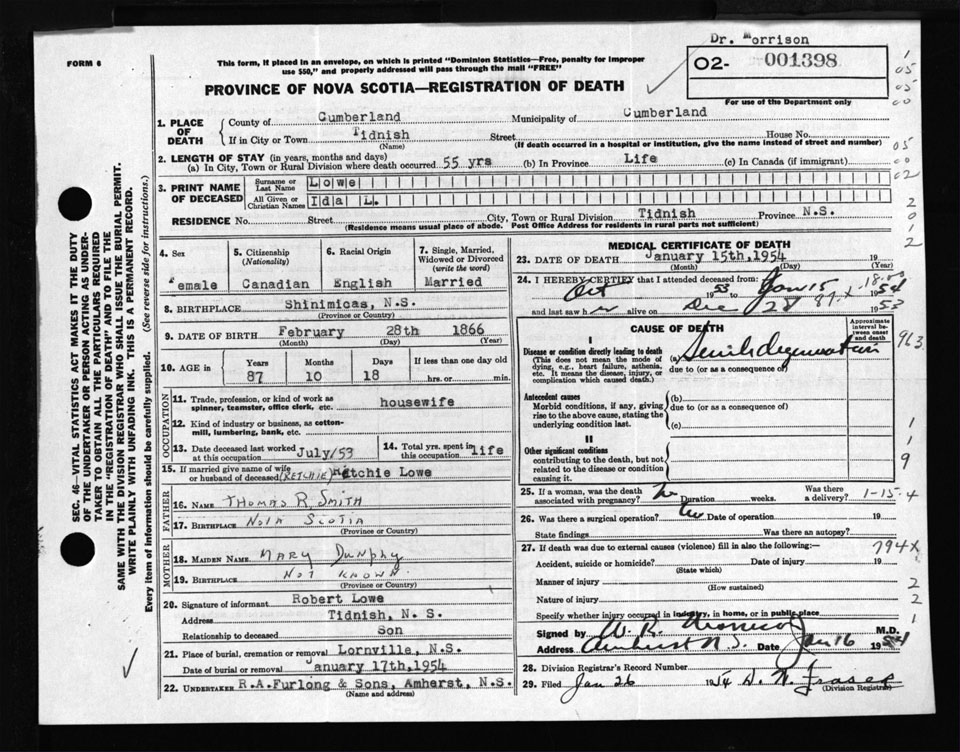 Dr. Morrison
FORM 6
This form, if placed in an envelope, on which is printed "Dominion Statistics—Free, penalty for improper
use $50," and properly addressed will pass through the mail "FREE"
02- 001398
PROVINCE OF NOVA SCOTIA—REGISTRATION OF DEATH
For use of the Department only
1. PLACE OF DEATH
County of Cumberland Municipality of Cumberland
If in City or Town Tidnish Street House No.
(Name) (If death occurred in a hospital or institution, give the name instead of street and number)
2. LENGTH OF STAY (in years, months and days)
(a) In City, Town or Rural Division where death occurred 55 yrs (b) In Province Life (c) In Canada (if immigrant)
3. PRINT NAME OF DECEASED
Surname or Last Name Lowe
All Given or Christian Names Ida L.
RESIDENCE No. Street City, Town or Rural Division Tidnish Province N.S.
(Residence means usual place of abode. Post Office Address for residents in rural parts not sufficient)
4. Sex
Female
5. Citizenship (Nationality)
Canadian
6. Racial Origin
English
7. Single, Married, Widowed or Divorced (write the word)
Married
8. BIRTHPLACE Shinimicas, N.S.
(Province or Country)
9. DATE OF BIRTH February 28th 1866
(Month) (Day) (Year)
10. AGE in Years Months Days If less than one day old
87 10 18 hrs. or min.
OCCUPATION
11. Trade, profession, or kind of work as spinner, teamster, office clerk, etc. housewife
12. Kind of industry or business, as cotton-mill, lumbering, bank, etc.
13. Date deceased last worked at this occupation July/53
14. Total yrs. spent in this occupation life
15. If married give name of wife or husband of deceased (RETCHIE) Retchie Lowe
FATHER
16. NAME THOMAS R. SMITH
17. BIRTHPLACE NOVA SCOTIA
(Province or Country)
MOTHER
18. MAIDEN NAME MARY DUNPHY
19. BIRTHPLACE NOT KNOWN
(Province or Country)
20. Signature of informant Robert Lowe
Address Tidnish, N. S.
Relationship to deceased Son
21. Place of burial, cremation or removal Lornville, N.S.
Date of burial or removal January 17th, 1954
22. UNDERTAKER R.A.Furlong & Sons, Amherst, N.S.
(Name and address)
MEDICAL CERTIFICATE OF DEATH
23. DATE OF DEATH January 15th, 1954 19
(Month) (Day) (Year)
24. I HEREBY CERTIFY that I attended deceased from:
Oct 1953 to Jan 15 1954
and last saw her alive on Dec 28 1953
87.X
CAUSE OF DEATH
Approximate interval between onset and death
I
Disease or condition directly leading to death
(This does not mean the mode of dying, e.g., heart failure, asthenia, etc. It means the disease, injury, or complication which caused death.)
(a) Senile degeneration
due to (or as a consequence of)
Antecedent causes
Morbid conditions, if any, giving rise to the above cause, stating the underlying condition last.
(b)
due to (or as a consequence of)
(c)
II
Other significant conditions
contributing to the death, but not related to the disease or condition causing it.
963
25. If a woman, was the death associated with pregnancy? no Duration weeks. Was there a delivery? 1-15-4
26. Was there a surgical operation? no Date of operation 19
State findings Was there an autopsy?
27. If death was due to external causes (violence) fill in also the following:— 794X
Accident, suicide or homicide? Date of injury 19
(State which)
Manner of injury
(How sustained)
Nature of injury
Specify whether injury occurred in industry, in home, or in public place
Signed by W. R. Morrison M.D.
Address Amherst N.S. Date Jan 16 1954
28. Division Registrar's Record Number
29. Filed Jan 26 1954
(Division Registrar)
SEC. 46—VITAL STATISTICS ACT MAKES IT THE DUTY
OF THE UNDERTAKER OR PERSON ACTING AS UNDER-
TAKER TO OBTAIN ALL THE PARTICULARS REQUIRED
IN THE "REGISTRATION OF DEATH" AND TO FILE THE
SAME WITH THE DIVISION REGISTRAR WHO SHALL ISSUE THE BURIAL PERMIT.
WRITE PLAINLY WITH UNFADING INK. THIS IS A PERMANENT RECORD.
Every item of information should be carefully supplied. (See reverse side for instructions.)